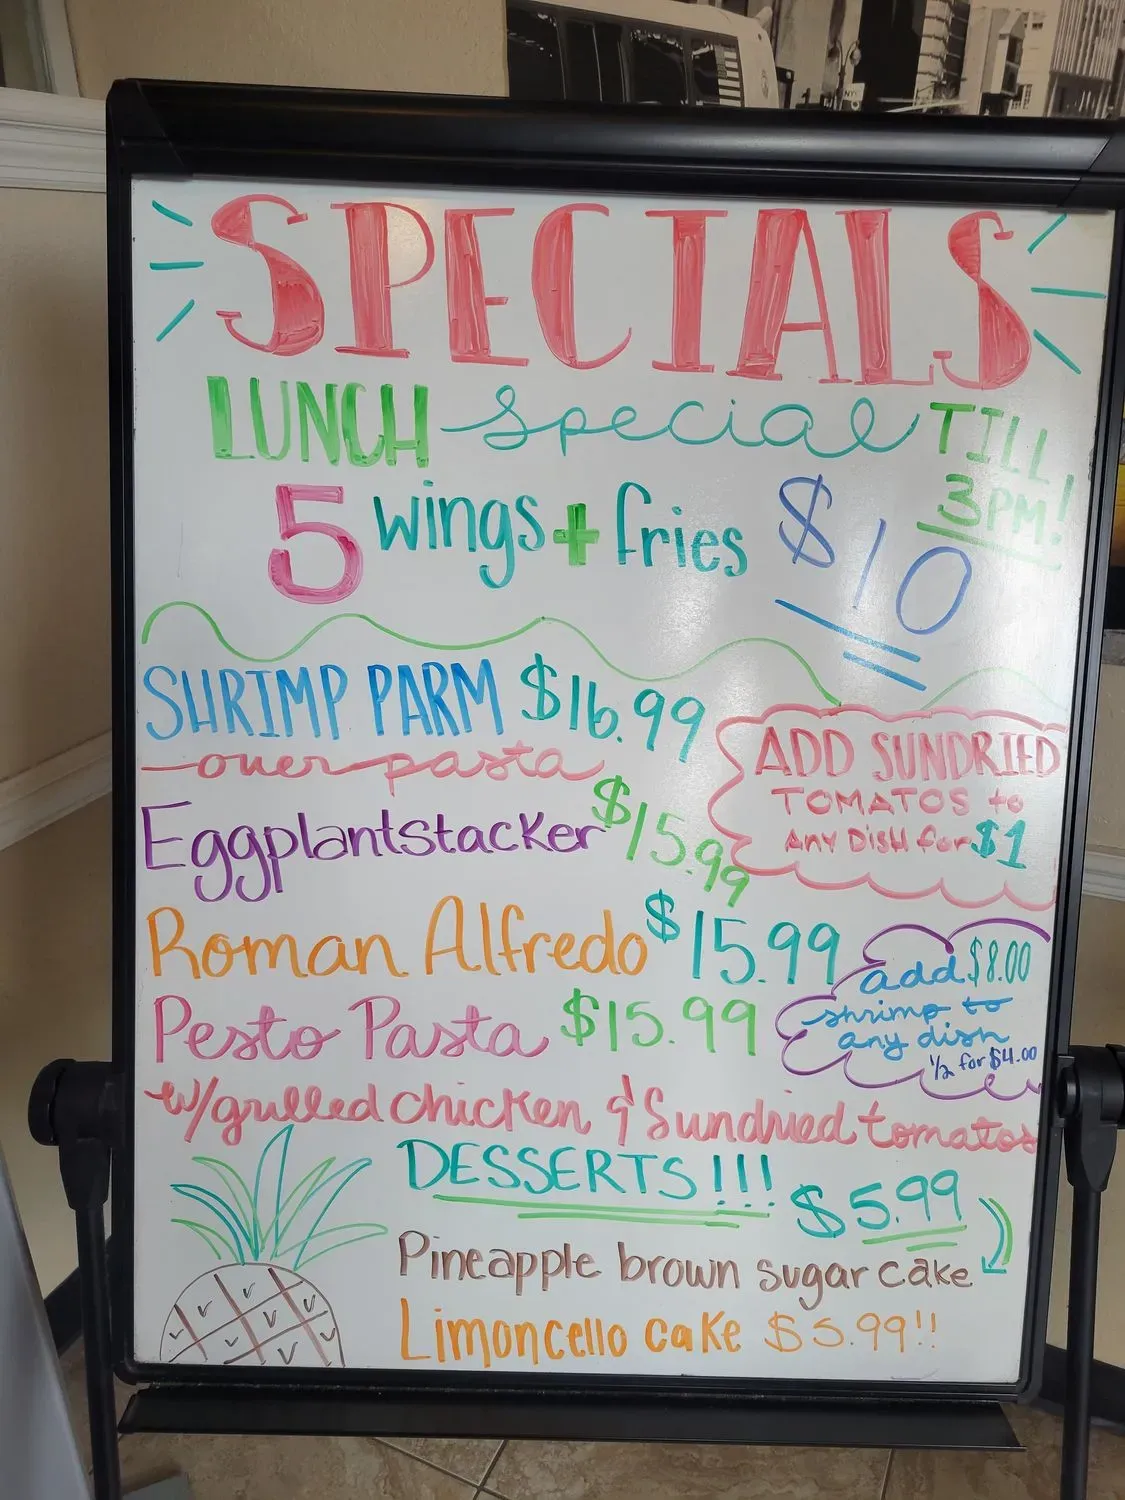 SPECIALS
LUNCH special TILL
3PM!
5 wings + fries $10
SHRIMP PARM $16.99
over pasta
ADD SUNDRIED
TOMATOS to
ANY DISH for $1
Eggplantstacker $15.99
Roman Alfredo $15.99
add $8.00
shrimp to
any dish
1/2 for $4.00
Pesto Pasta $15.99
w/grilled chicken & Sundried tomatos
DESSERTS!!! $5.99
Pineapple brown sugar cake
Limoncello cake $5.99!!